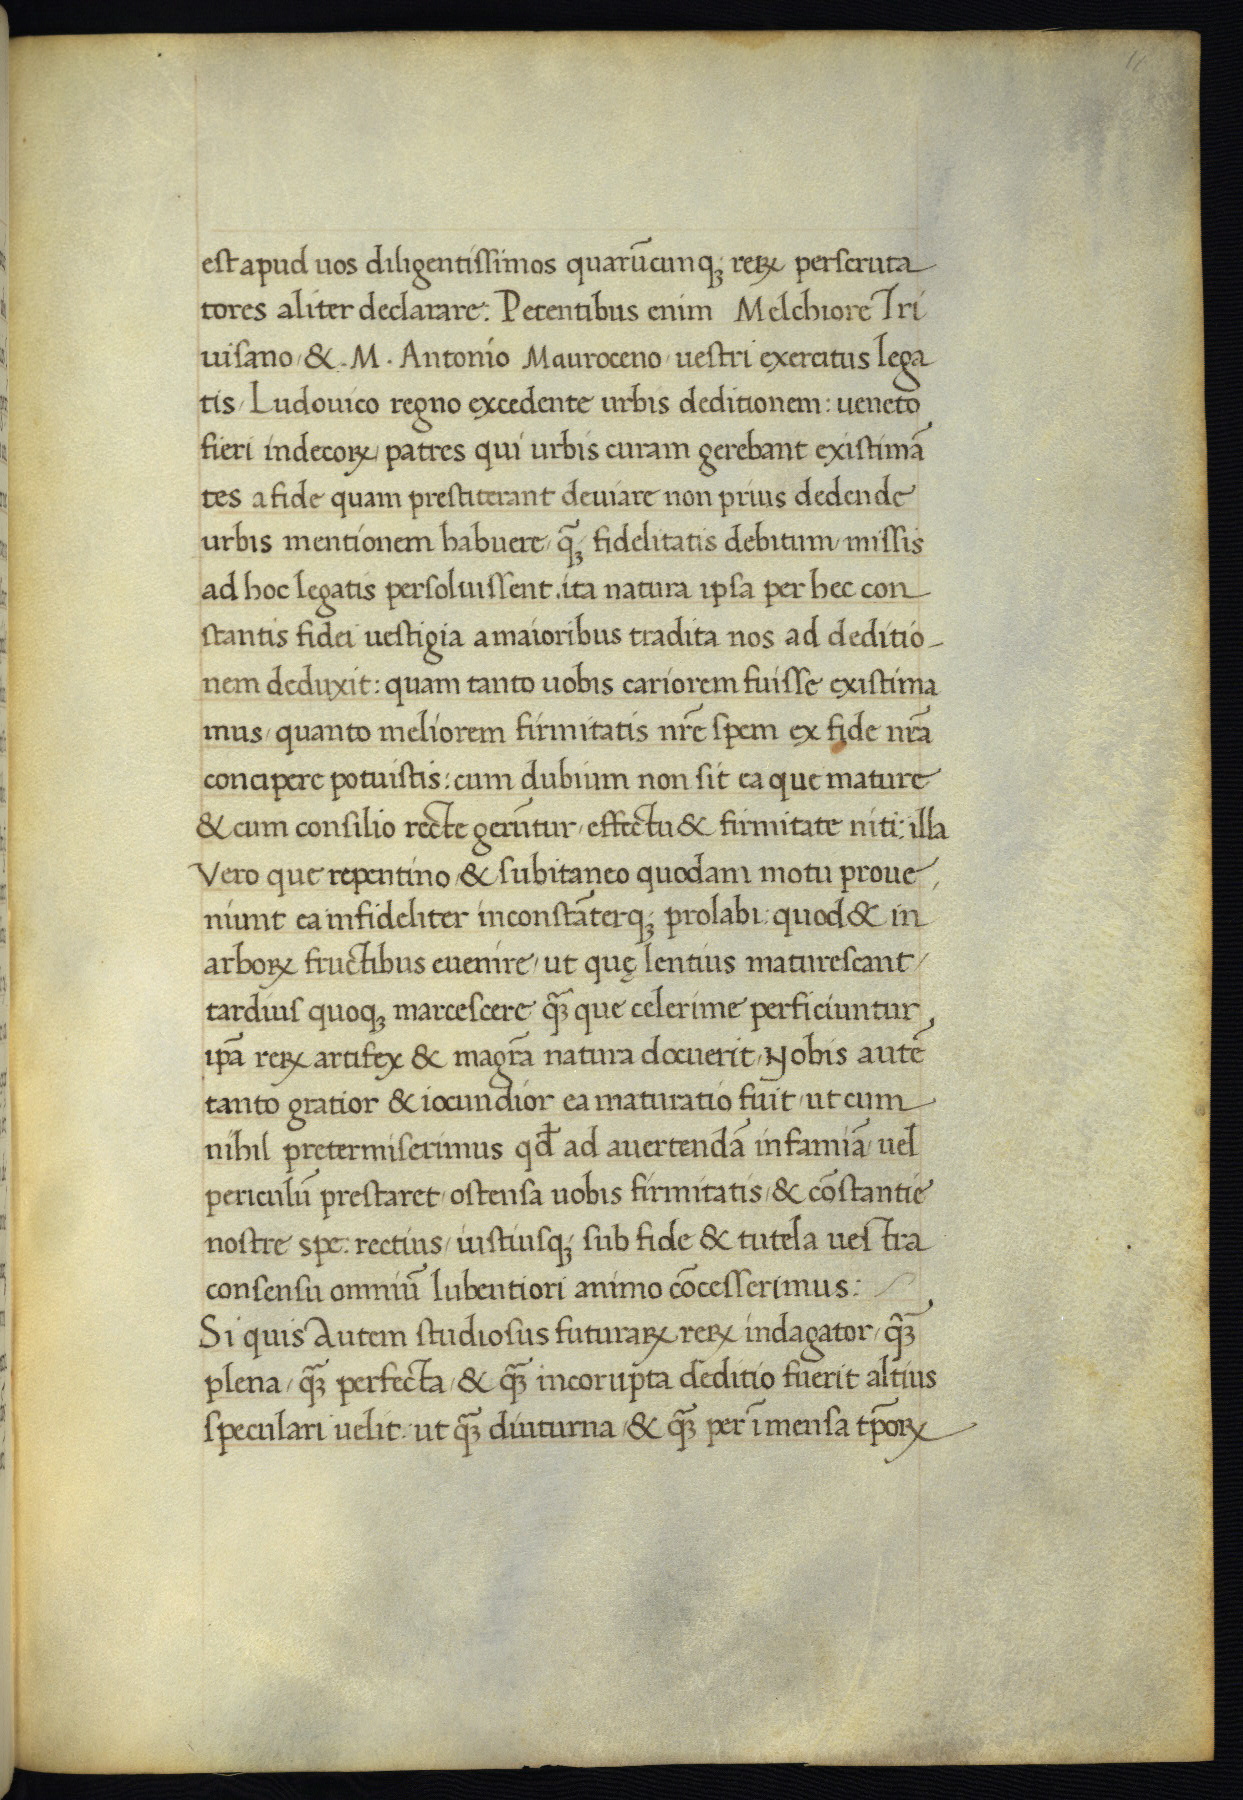 est apud uos diligentissimos quarūcunqꝫ reꝝ perscruta
tores aliter declarare: Petentibus enim Melchiore Tri
uisano / & . M . Antonio Mauroceno / uestri exercitus lega
tis / Ludouico regno excedente urbis deditionem: ueneto
fieri indecoꝝ / patres qui urbis curam gerebant existimā
tes a fide quam prestiterant deuiare non prius dedende
urbis mentionem habuere / q̄ꝫ fidelitatis debitum / missis
ad hoc legatis persoluissent . ita natura ipsa per hec con
stantis fidei uestigia a maioribus tradita nos ad deditio-
nem deduxit: quam tanto uobis cariorem fuisse existima
mus / quanto meliorem firmitatis nr̄e spem ex fide nr̄a
concipere potuistis: cum dubium non sit ea que mature
& cum consilio recte gerūntur / effectu & firmitate niti: illa
Vero que repentino / & subitaneo quodam motu proue
niunt ea infideliter inconstāterqꝫ prolabi: quod & in
arboꝝ fructibus euenire / ut quę lentius maturescant /
tardius quoqꝫ marcescere q̄ꝫ que celerime perficiuntur
ip̄a reꝝ artifex & magr̄a natura docuerit / Nobis autē
tanto gratior & iocundior ea maturatio fuīt / ut cum
nihil pretermiserimus qđ ad auertendā infamiā / uel
periculū prestaret / ostensa uobis firmitatis / & cōstantie
nostre spe: rectius / iustiusqꝫ sub fide & tutela uestra
consensu omniū lubentiori animo cōcesserimus:
Si quis Autem studiosus futuraꝝ reꝝ indagator / q̄ꝫ
plena / q̄ꝫ perfecta / & q̄ꝫ incorupta deditio fuerit altius
speculari uelit: ut q̄ꝫ diuturna / & q̄ꝫ per īmensa tp̄oꝝ